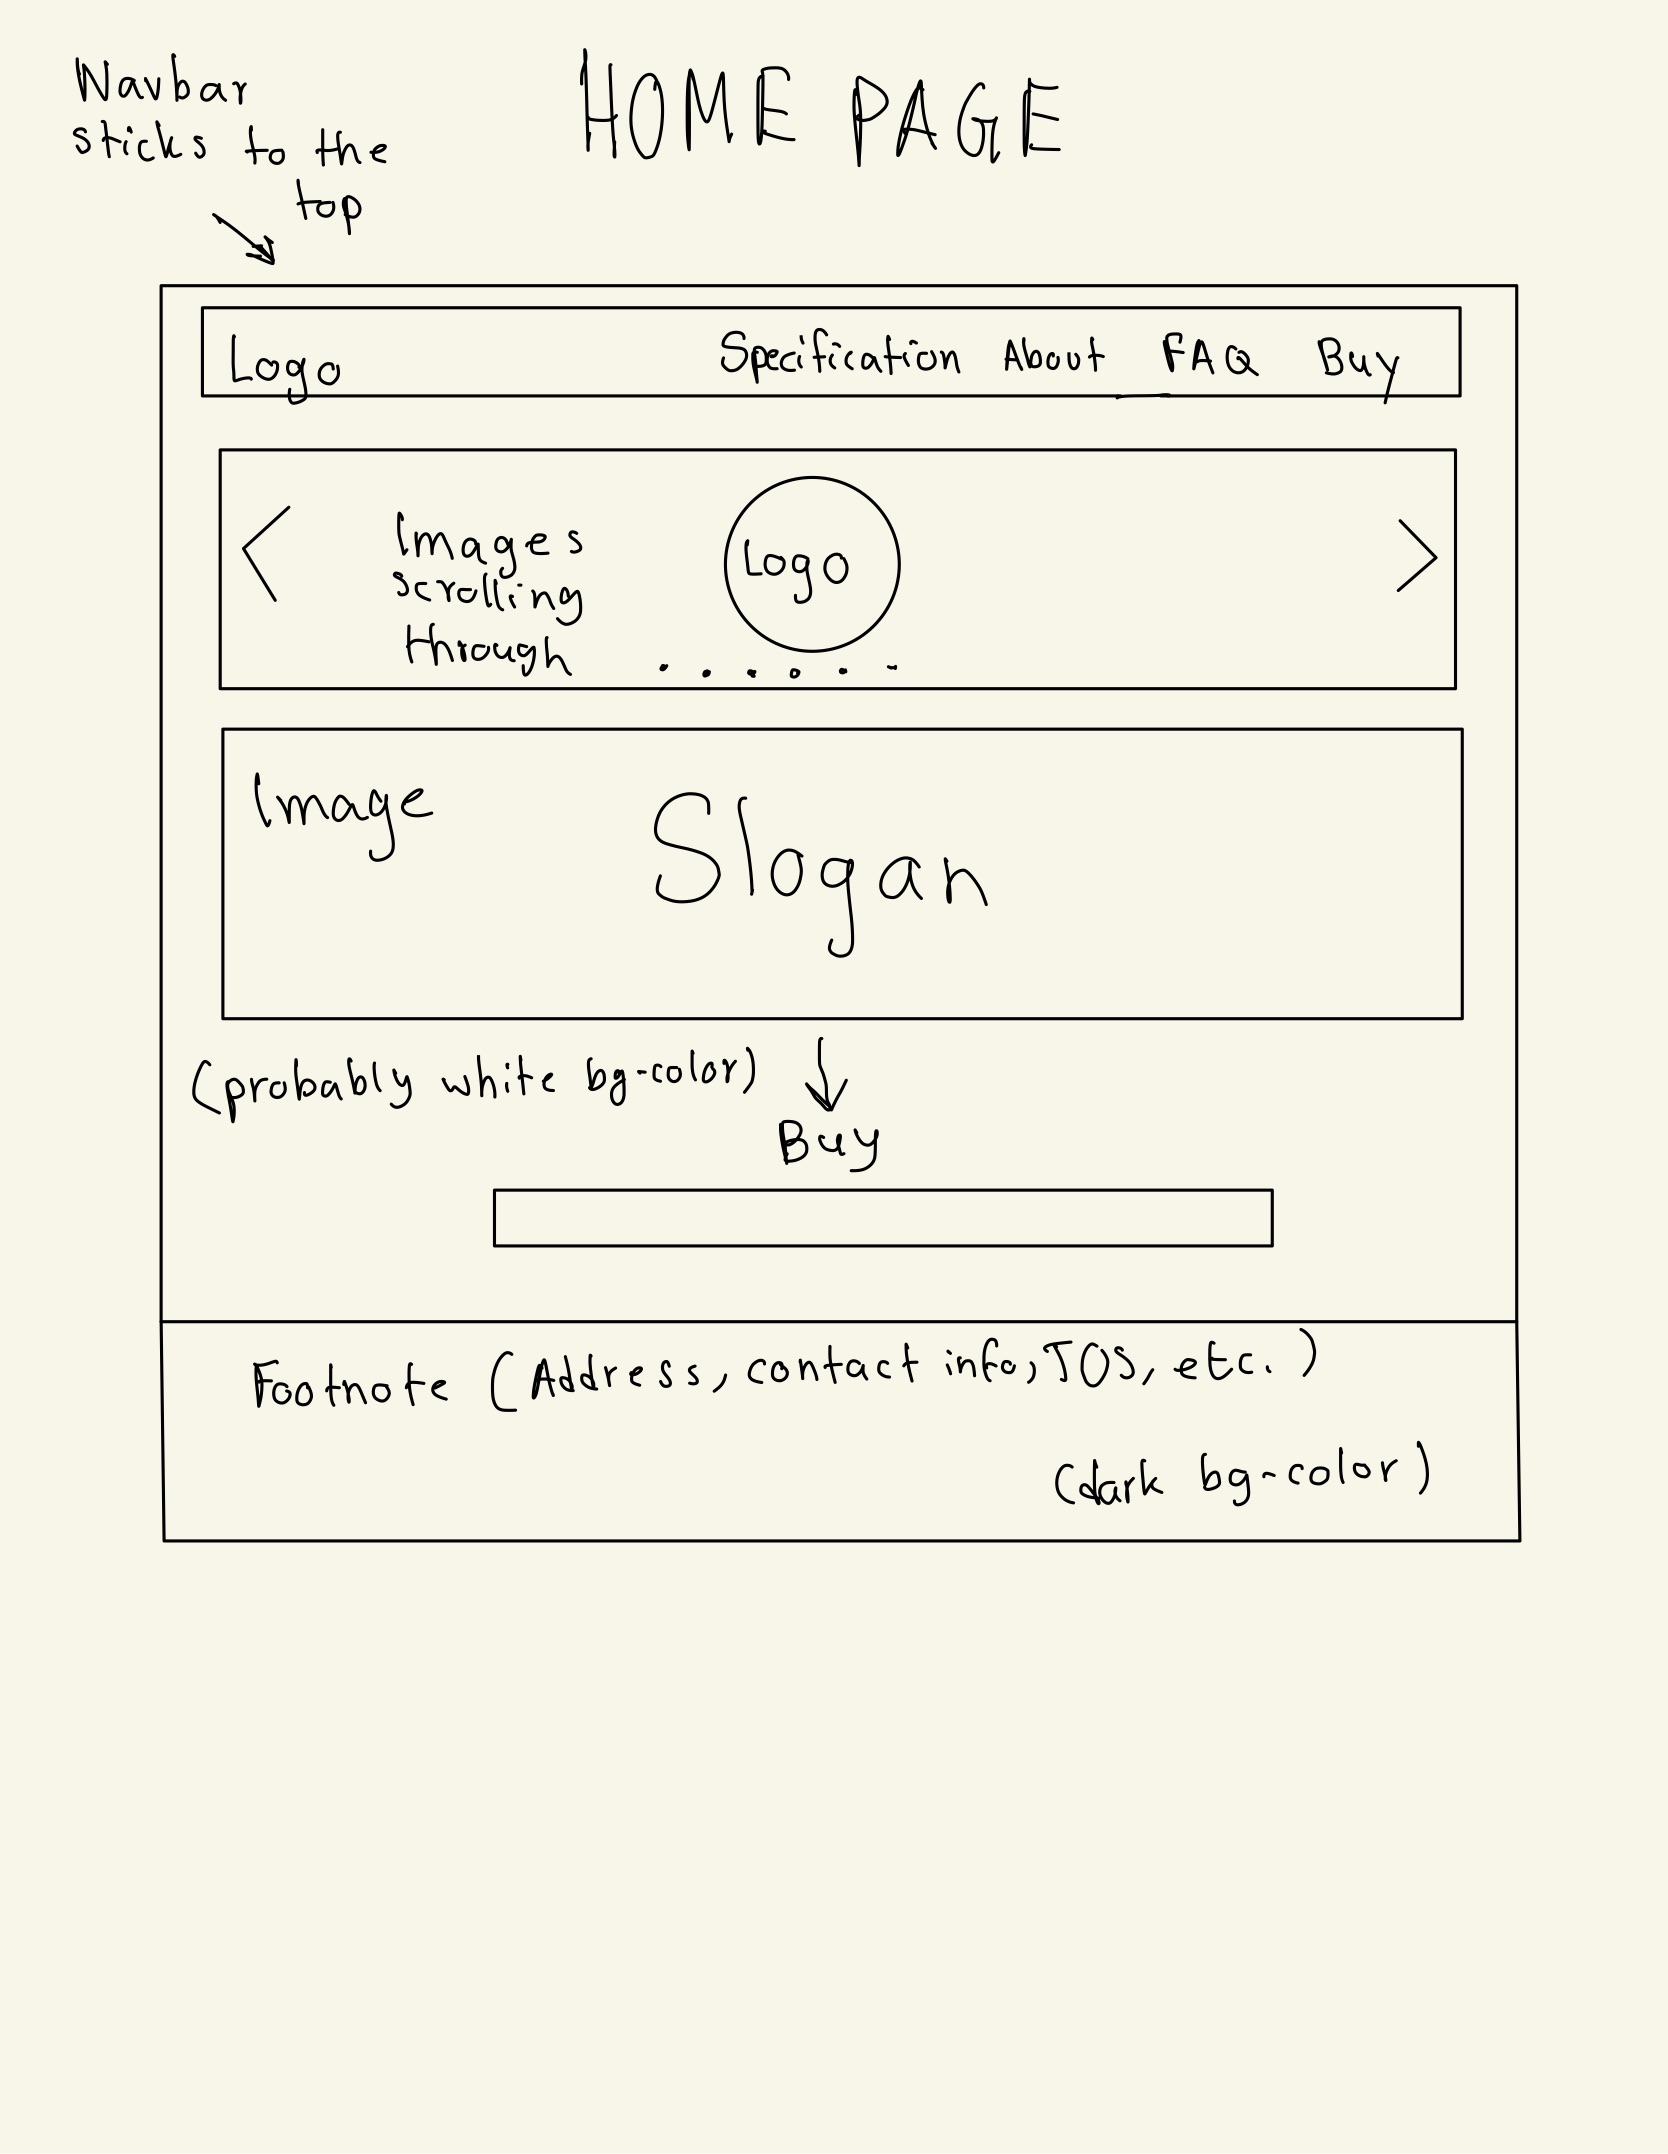 HOME PAGE
Navbar
sticks to the
top
Logo Specification About FAQ Buy
Images
scrolling
through
Logo
Image
Slogan
(probably white bg-color)
Buy
Footnote (Address, contact info, TOS, etc.)
(dark bg-color)